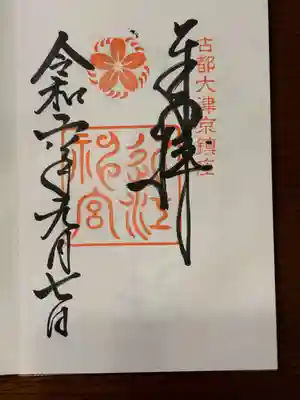 古都大津京鎮座
奉拝
近江
神宮
令和六年 月七日